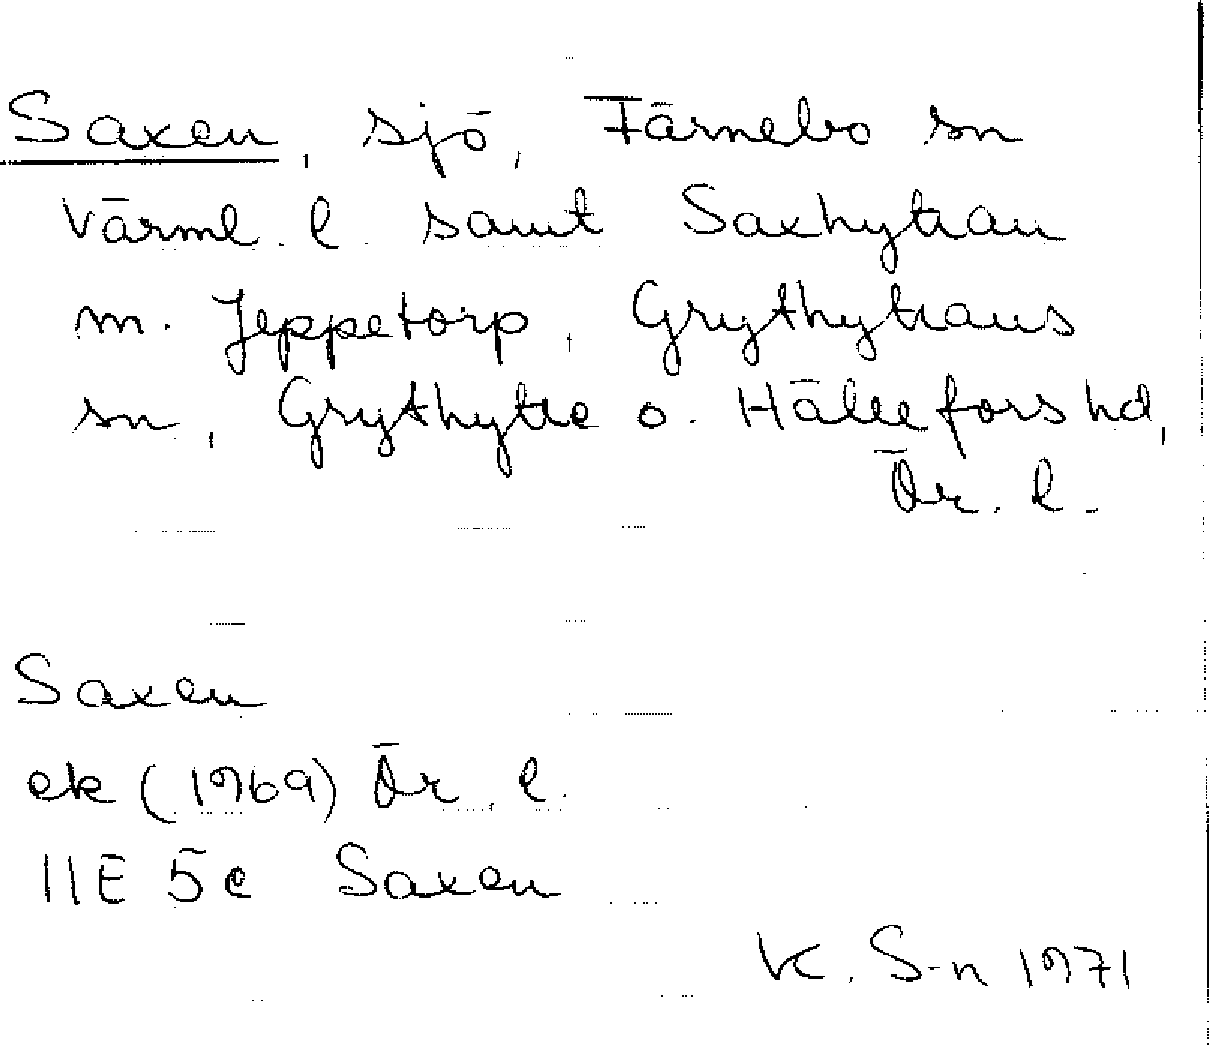 Saxen, sjö, Färnebo sn
Värml. l. samt Saxhyttan
m. Jeppetorp, Grythyttans
sn, Grythytte o. Hällefors hd,
Ör. l.
Saxen
ek (1969) Ör. l.
11E 5e Saxen
K. S-n 1971